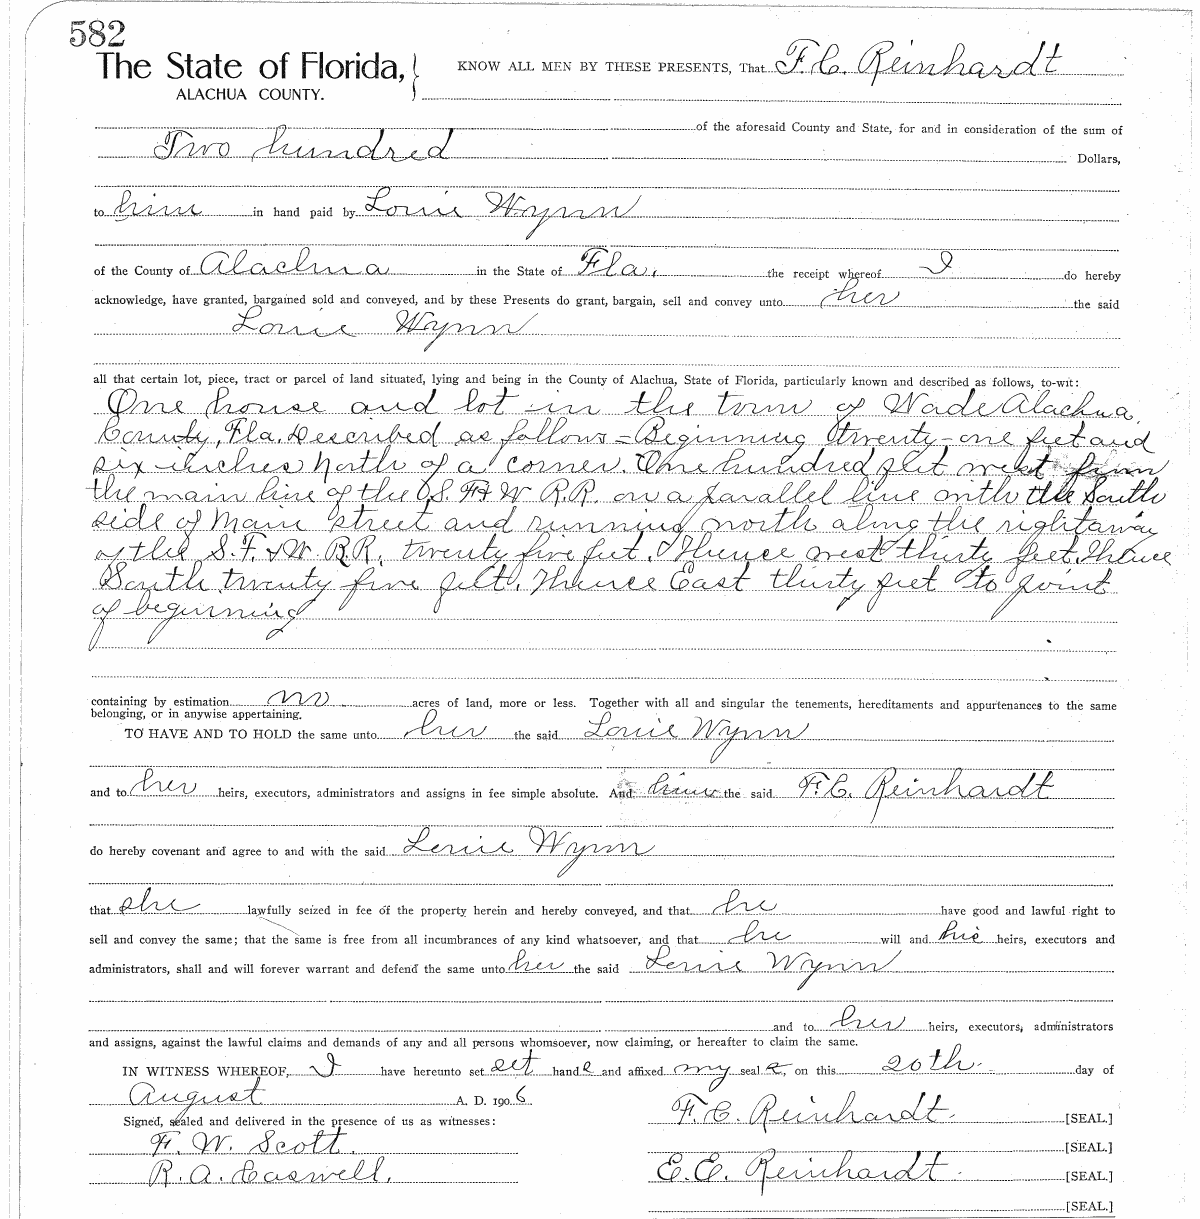 582
The State of Florida, KNOW ALL MEN BY THESE PRESENTS, That F. C. Reinhardt
ALACHUA COUNTY.
of the aforesaid County and State, for and in consideration of the sum of
Two hundred Dollars,
to him in hand paid by Louie Wynn
of the County of Alachua in the State of Fla. the receipt whereof I do hereby
acknowledge, have granted, bargained sold and conveyed, and by these Presents do grant, bargain, sell and convey unto her the said
Louie Wynn
all that certain lot, piece, tract or parcel of land situated, lying and being in the County of Alachua, State of Florida, particularly known and described as follows, to-wit:
One house and lot in the town of Wade Alachua
County, Fla. Described as follows = Beginning twenty-one feet and
six inches North of a corner. One hundred feet west from
the main line of the S. F & W R.R. on a parallel line with the South
side of Main street and running north along the rightaway
of the S. F. & W. R.R. twenty five feet. Thence west thirty feet. Thence
South twenty five feet. Thence East thirty feet to point
of beginning
containing by estimation no acres of land, more or less. Together with all and singular the tenements, hereditaments and appurtenances to the same
belonging, or in anywise appertaining.
TO HAVE AND TO HOLD the same unto her the said Louie Wynn
and to her heirs, executors, administrators and assigns in fee simple absolute. And the said F. C. Reinhardt
do hereby covenant and agree to and with the said Louie Wynn
that she lawfully seized in fee of the property herein and hereby conveyed, and that he have good and lawful right to
sell and convey the same; that the same is free from all incumbrances of any kind whatsoever, and that he will and his heirs, executors and
administrators, shall and will forever warrant and defend the same unto her the said Louie Wynn
and to her heirs, executors, administrators
and assigns, against the lawful claims and demands of any and all persons whomsoever, now claiming, or hereafter to claim the same.
IN WITNESS WHEREOF, I have hereunto set set hand and affixed my seal, on this 20th day of
August A. D. 1906
Signed, sealed and delivered in the presence of us as witnesses: F. C. Reinhardt [SEAL.]
F. W. Scott. [SEAL.]
R. A. Caswell. E. E. Reinhardt [SEAL.]
[SEAL.]